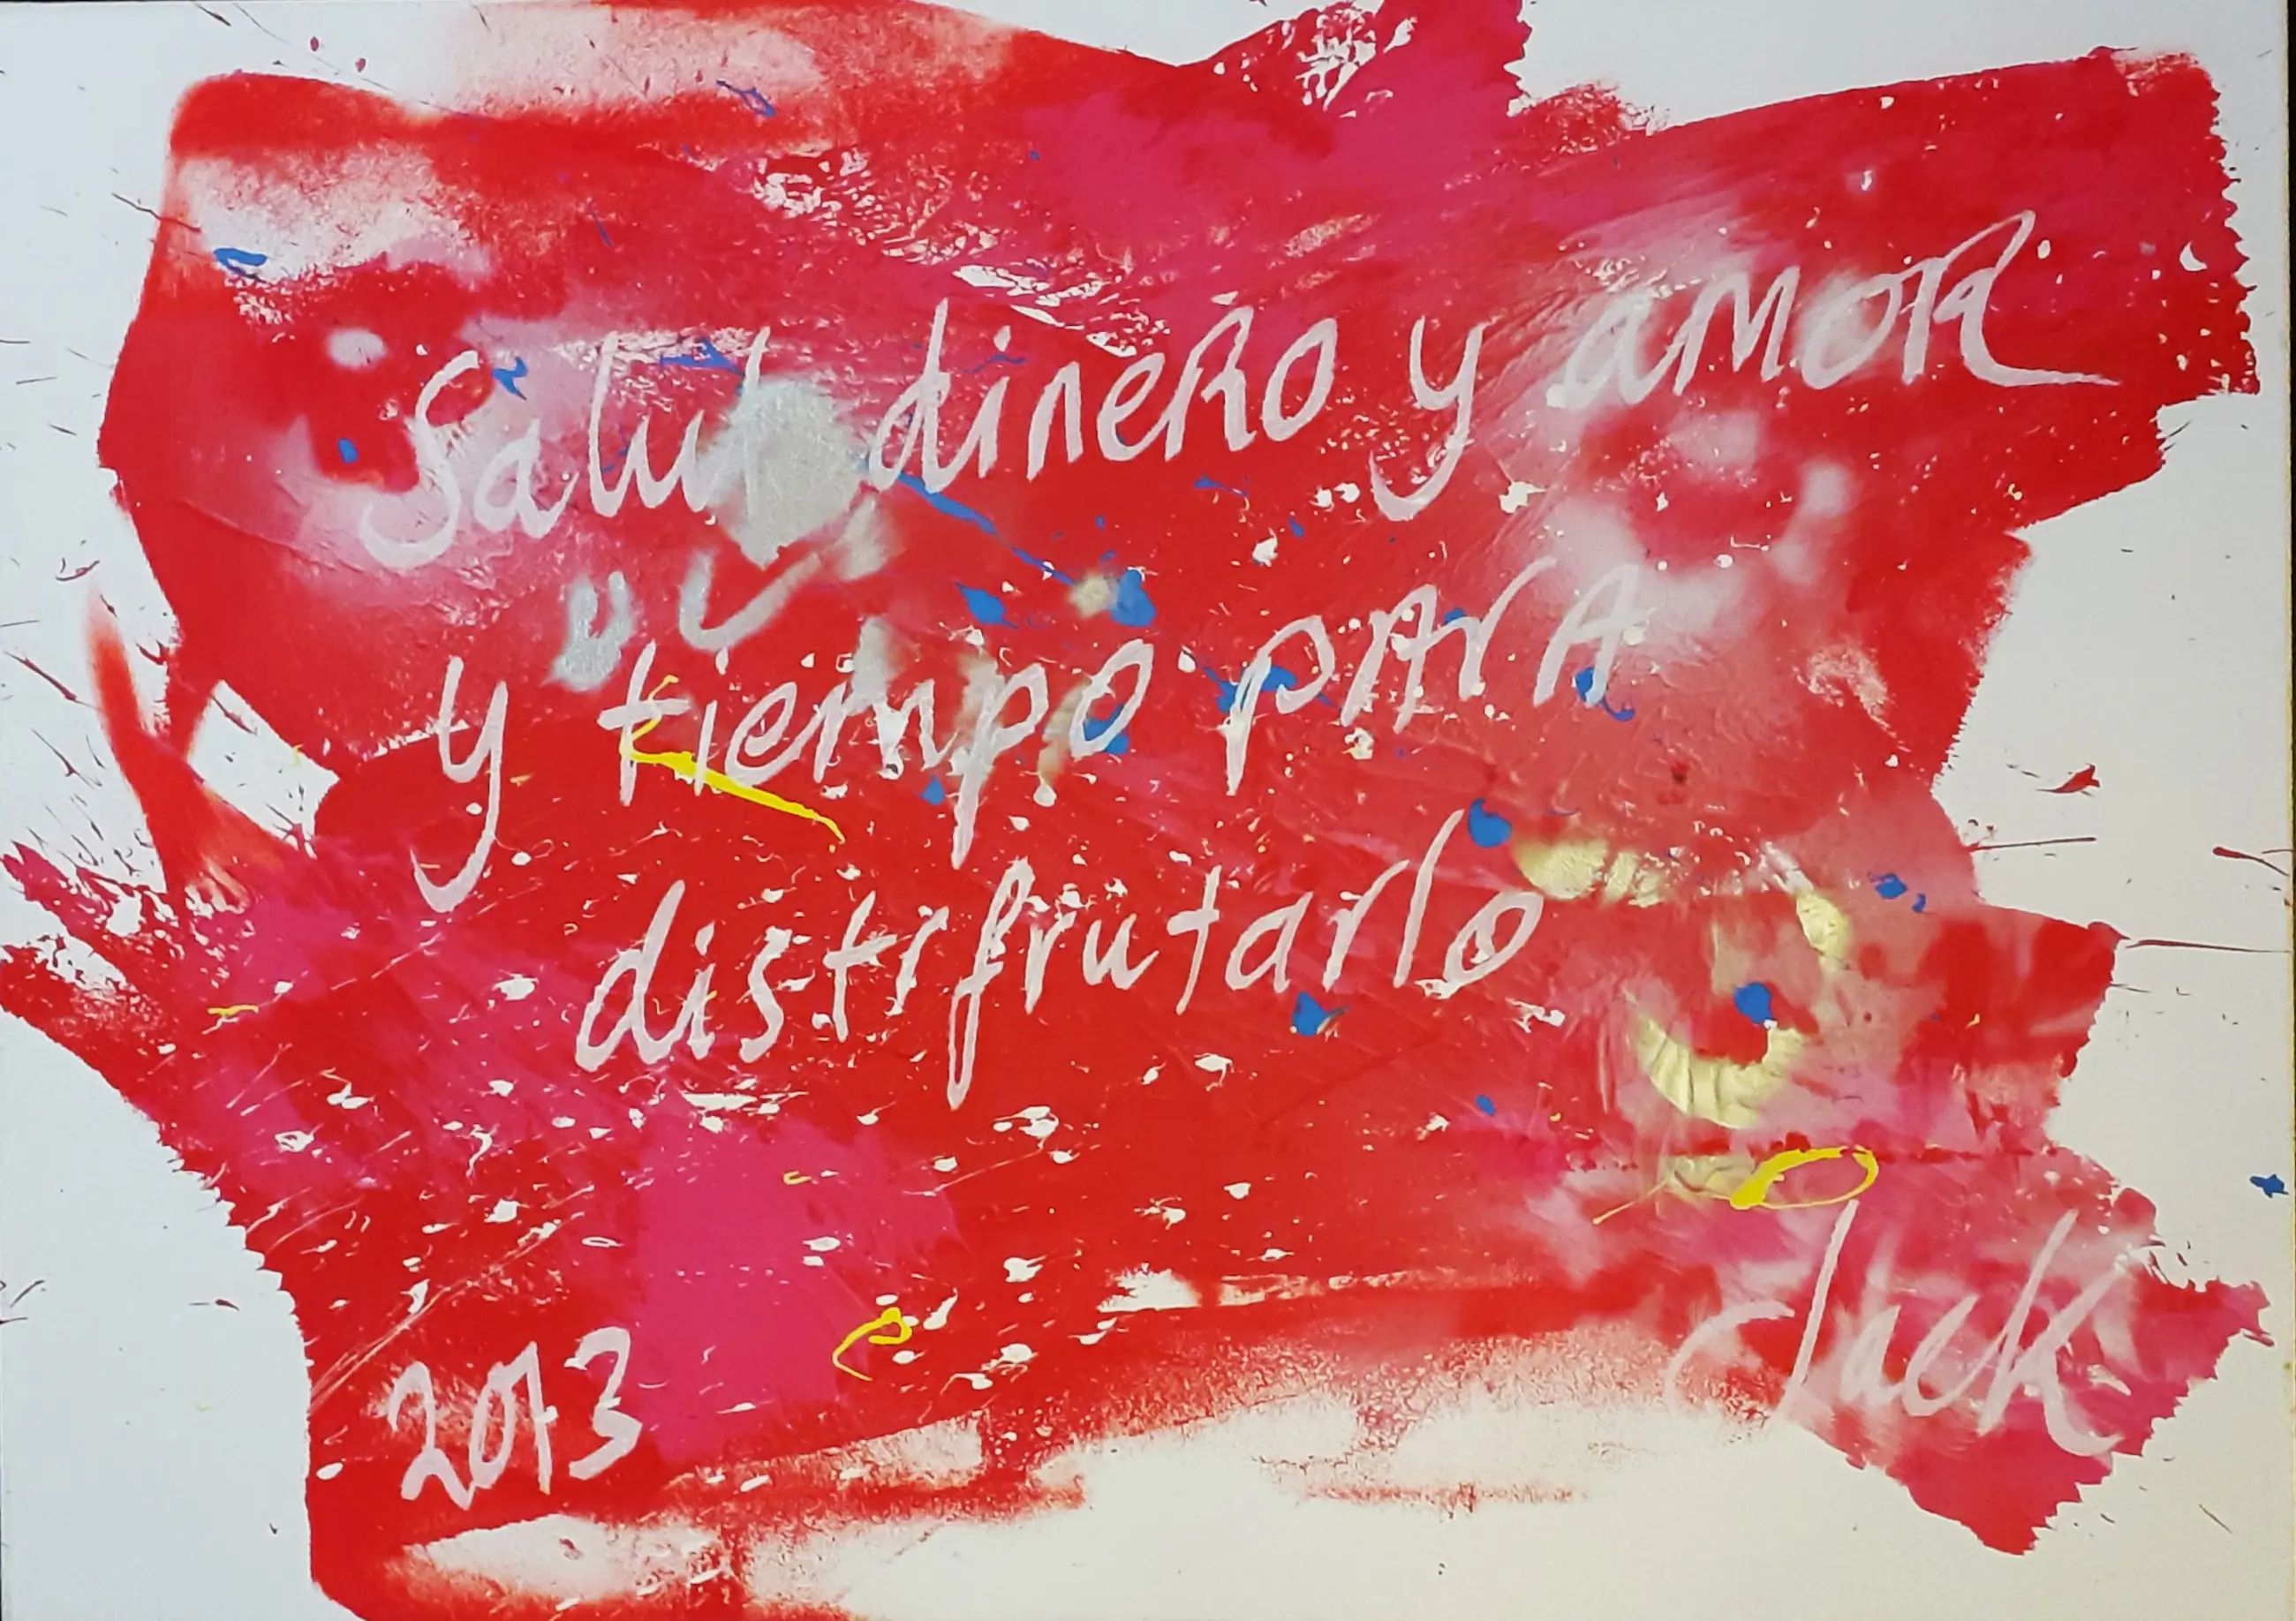 Salut dinero y amor
y tiempo para
distrfrutarlo
2013
Jack